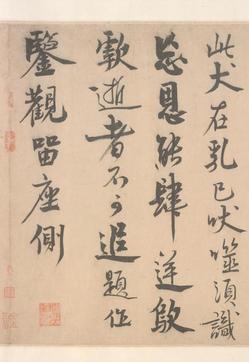 此犬在乳已吠噬須識
忘恩能肆逆欷
歔逝者不可追題作
鑒觀留座側